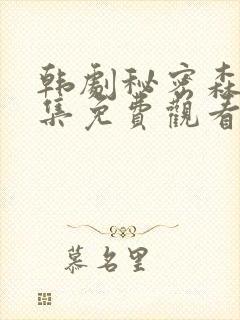 韩劇秘密森
集免費觀看
慕名里